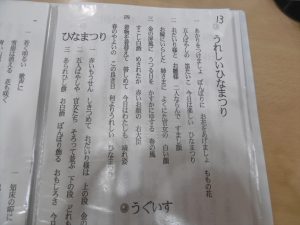 13 うれしいひなまつり
一 あかりをつけましょ ぼんぼりに お花をあげましょ ももの花
五人ばやしの 笛たいこ 今日は楽しい ひなまつり
二 おだいり様と お雛様 二人ならんで すまし顔
お嫁にいらした 姉さまに よくにた官女の 白い顔
三 金の屏風に うつる灯を かすかにゆする 春の風
すこし白酒 めされたか 赤いお顔の 右大臣
四 着物を着替えて 帯しめて 今日はわたしも 晴れ姿
春のやよいの この良き日 何よりうれしい ひなまつり
ひなまつり
一 赤いもうせん しきつめて おだいり様は 上の段 金の
五人ばやしや 官女たち そろって並ぶ 下の段
二 あられひし餅 お白酒 ぼんぼり飾る おもしろさ 今日
うぐいす